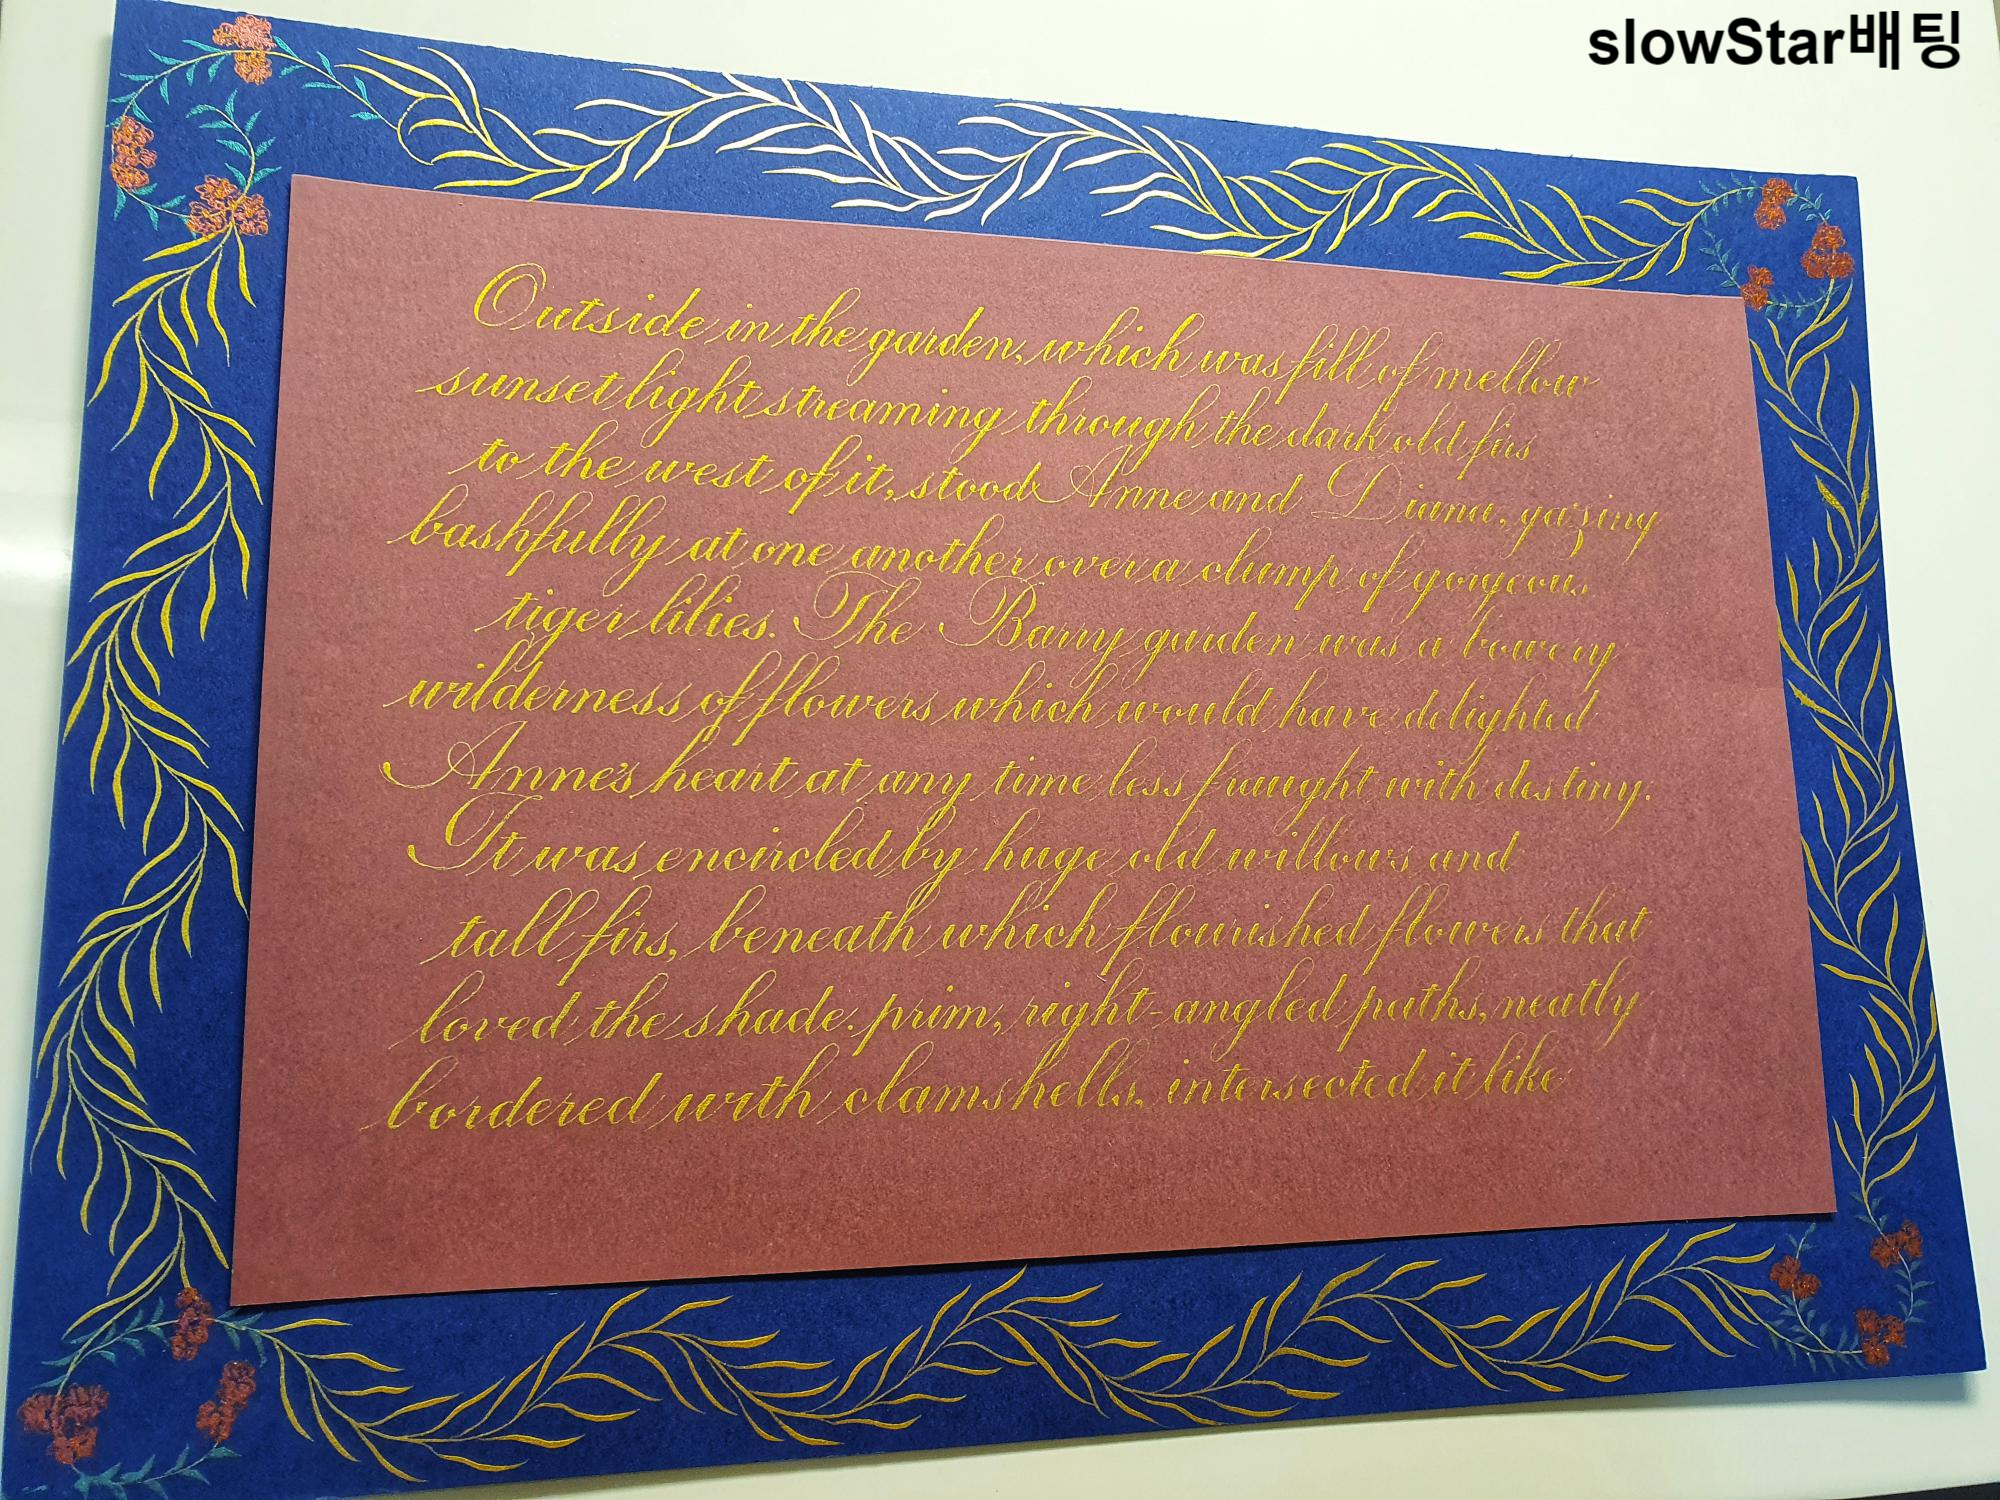 slowStar배팅
Outside in the garden, which was fill of mellow
sunset light streaming through the dark old firs
to the west of it, stood Anne and Diana, gazing
bashfully at one another over a clump of gorgeous
tiger lilies. The Barry garden was a bowery
wilderness of flowers which would have delighted
Anne's heart at any time less fraught with destiny.
It was encircled by huge old willows and
tall firs, beneath which flourished flowers that
loved the shade. prim, right-angled paths, neatly
bordered with clamshells, intersected it like